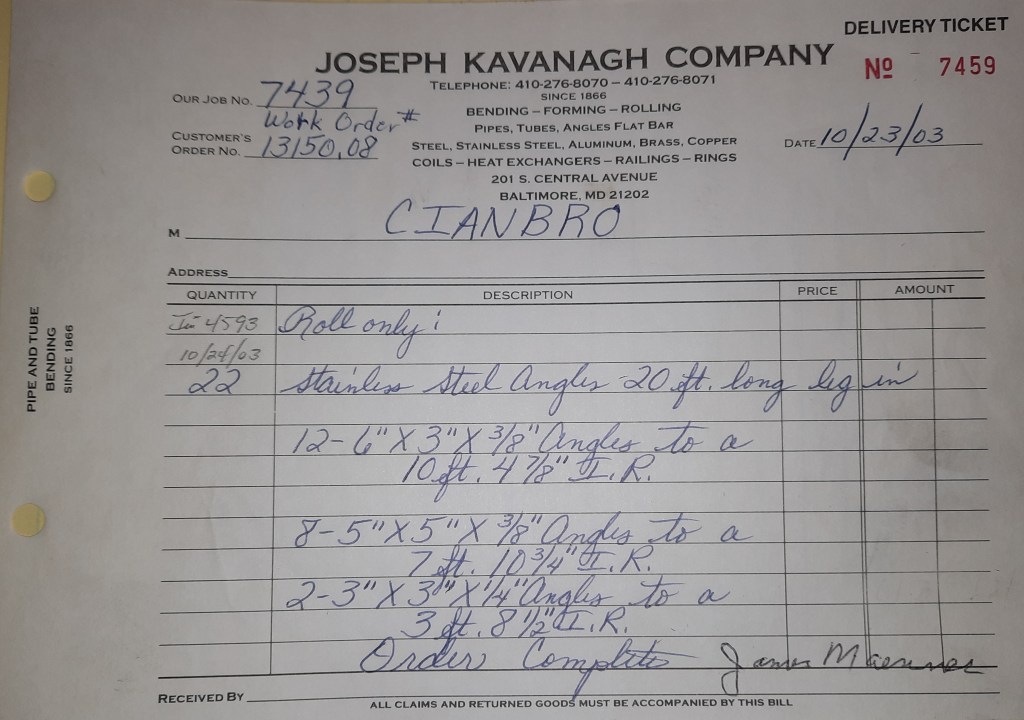 DELIVERY TICKET
JOSEPH KAVANAGH COMPANY
No 7459
TELEPHONE: 410-276-8070 – 410-276-8071
SINCE 1866
OUR JOB NO. 7439
BENDING – FORMING – ROLLING
Work Order #
PIPES, TUBES, ANGLES FLAT BAR
CUSTOMER'S
ORDER NO. 13150.08
STEEL, STAINLESS STEEL, ALUMINUM, BRASS, COPPER
DATE 10/23/03
COILS – HEAT EXCHANGERS – RAILINGS – RINGS
201 S. CENTRAL AVENUE
BALTIMORE, MD 21202
M CIANBRO
ADDRESS
QUANTITY DESCRIPTION PRICE AMOUNT
4593 Roll only:
10/24/03
22 Stainless Steel Angles 20 ft. long leg in
12-6" X 3" X 3/8" Angles to a
10 ft. 4 7/8" I.R.
8-5" X 5" X 3/8" Angles to a
7 ft. 10 3/4" I.R.
2-3" X 3" X 1/4" Angles to a
3 ft. 8 1/2" I.R.
Order Complete James
RECEIVED BY
ALL CLAIMS AND RETURNED GOODS MUST BE ACCOMPANIED BY THIS BILL
PIPE AND TUBE
BENDING
SINCE 1866